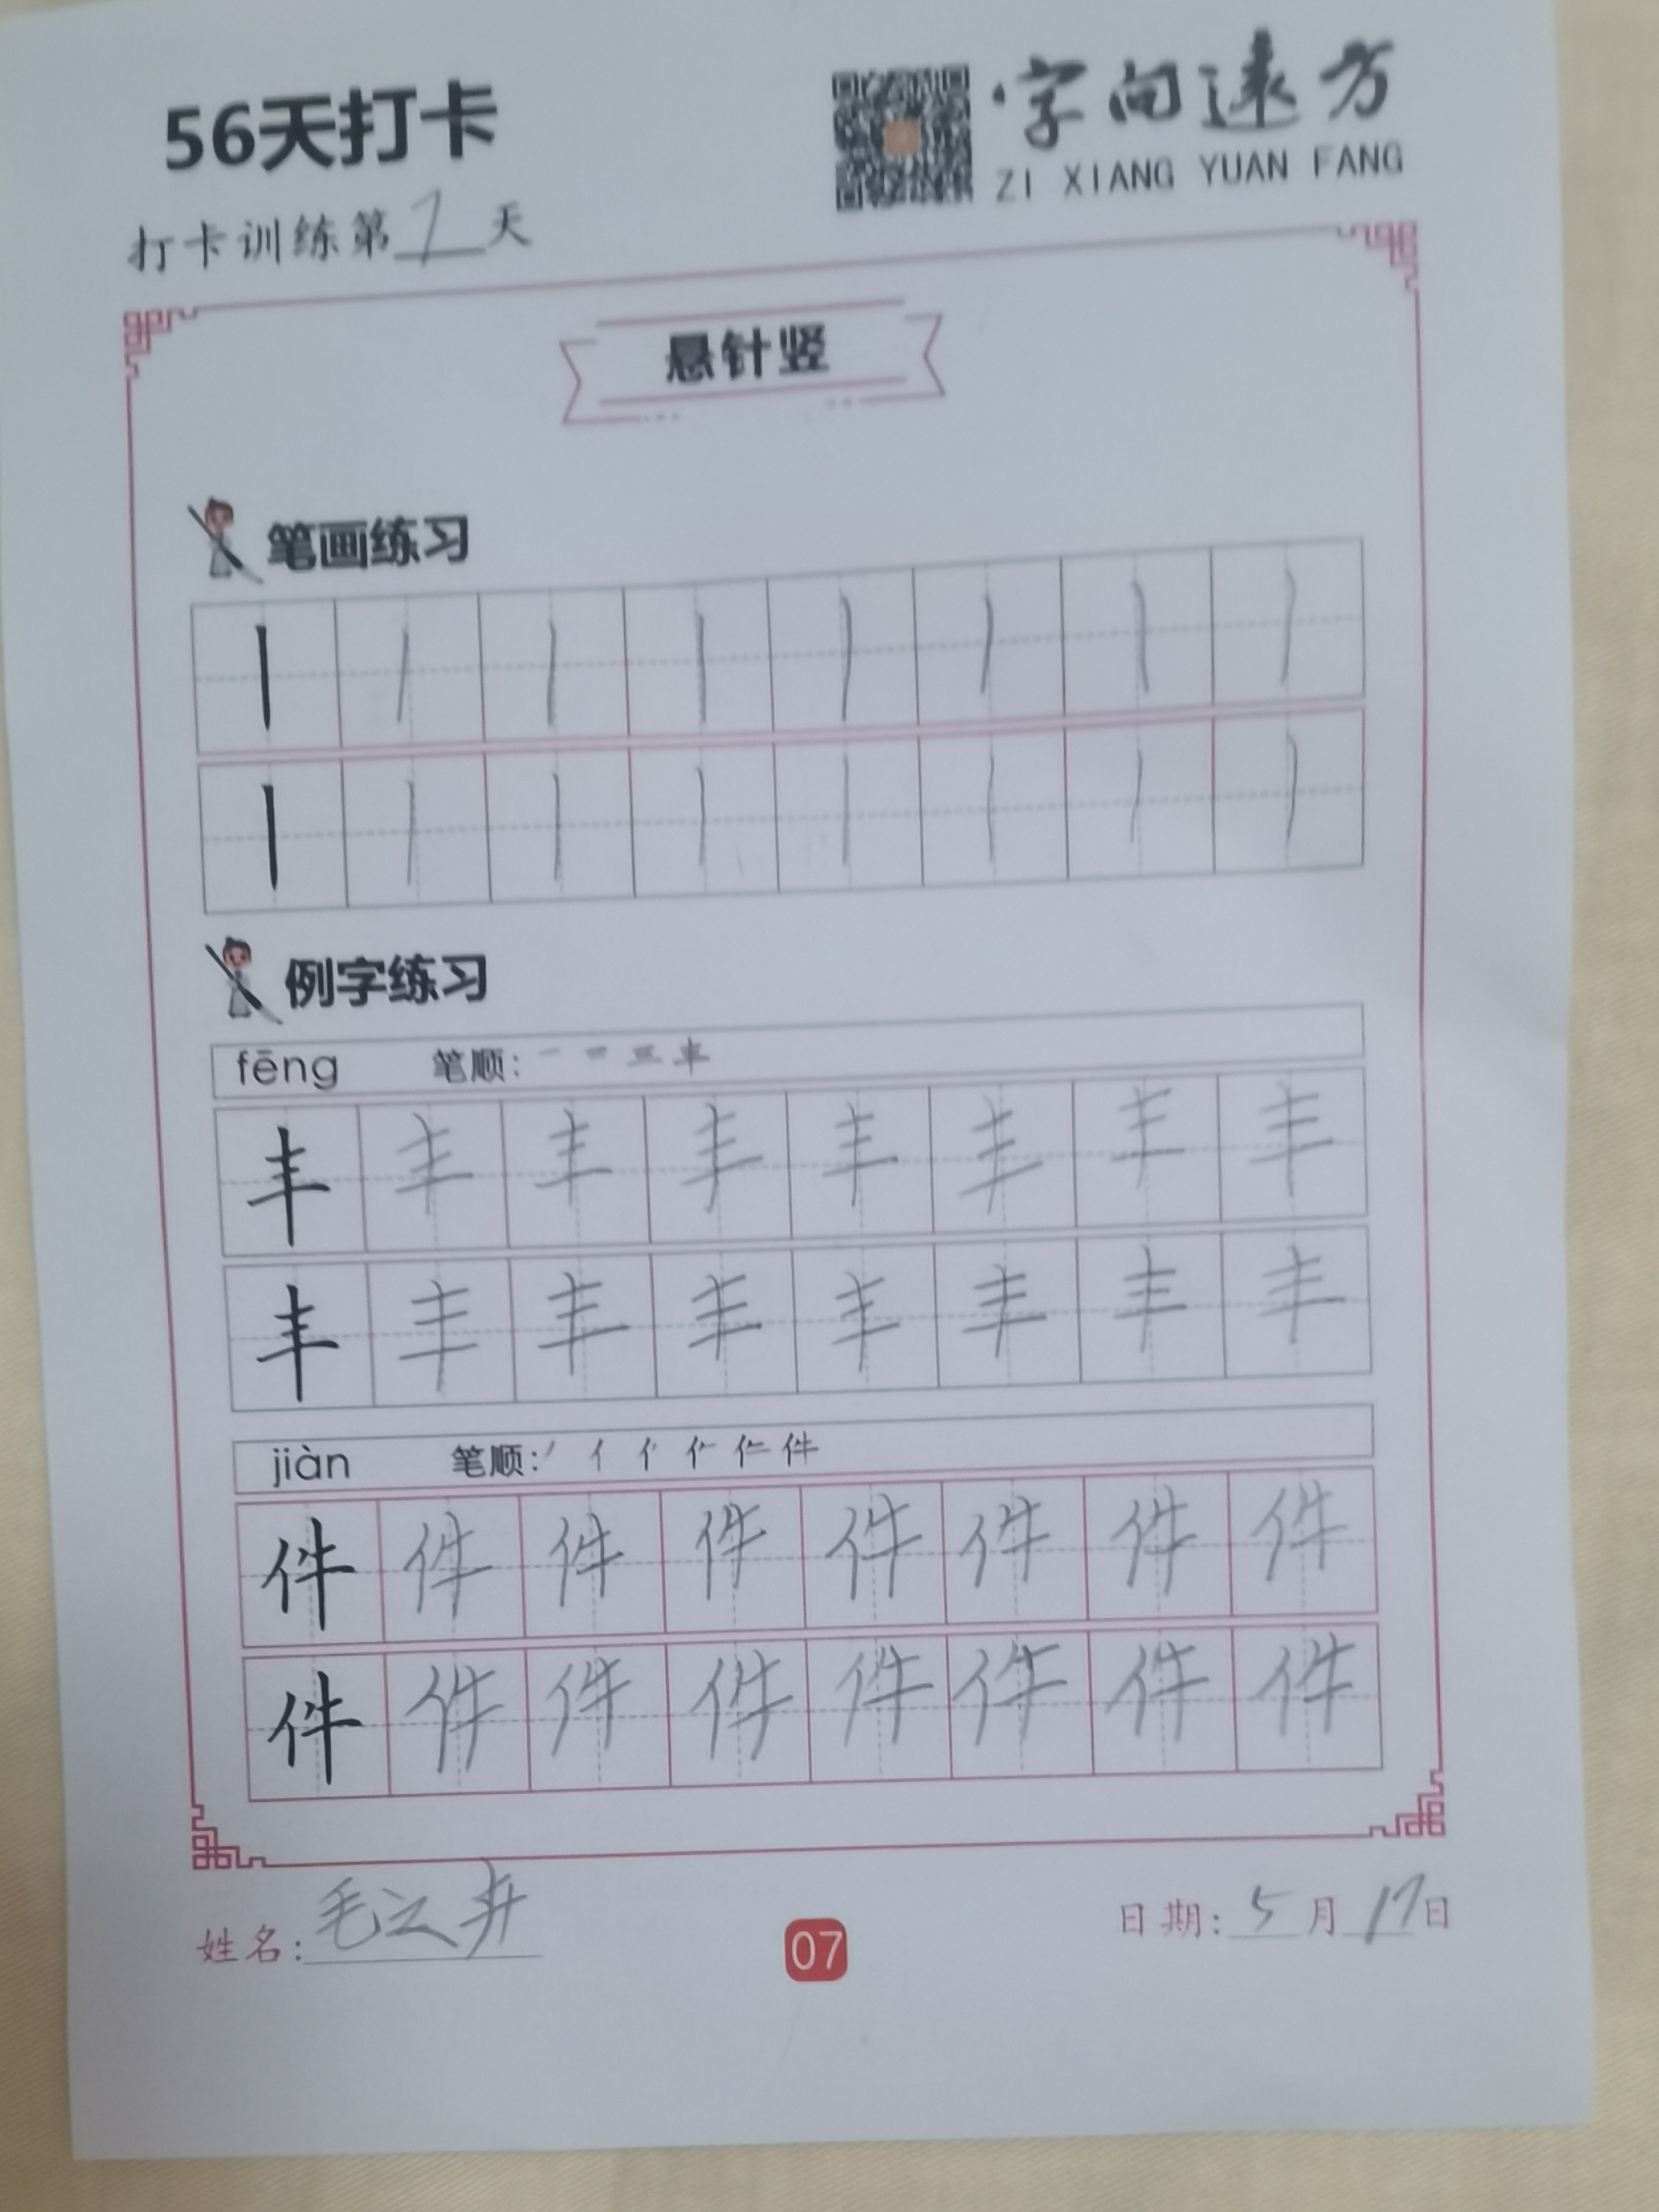 56天打卡
字向远方
ZI XIANG YUAN FANG
打卡训练第7天
悬针竖
笔画练习
丨丨丨丨丨丨丨丨
丨丨丨丨丨丨丨丨
例字练习
fēng 笔顺: 一 二 三 丰
丰丰丰丰丰丰丰丰
丰丰丰丰丰丰丰丰
jiàn 笔顺: 件
件件件件件件件件
件件件件件件件件
姓名: 毛之卉
07
日期: 5月17日